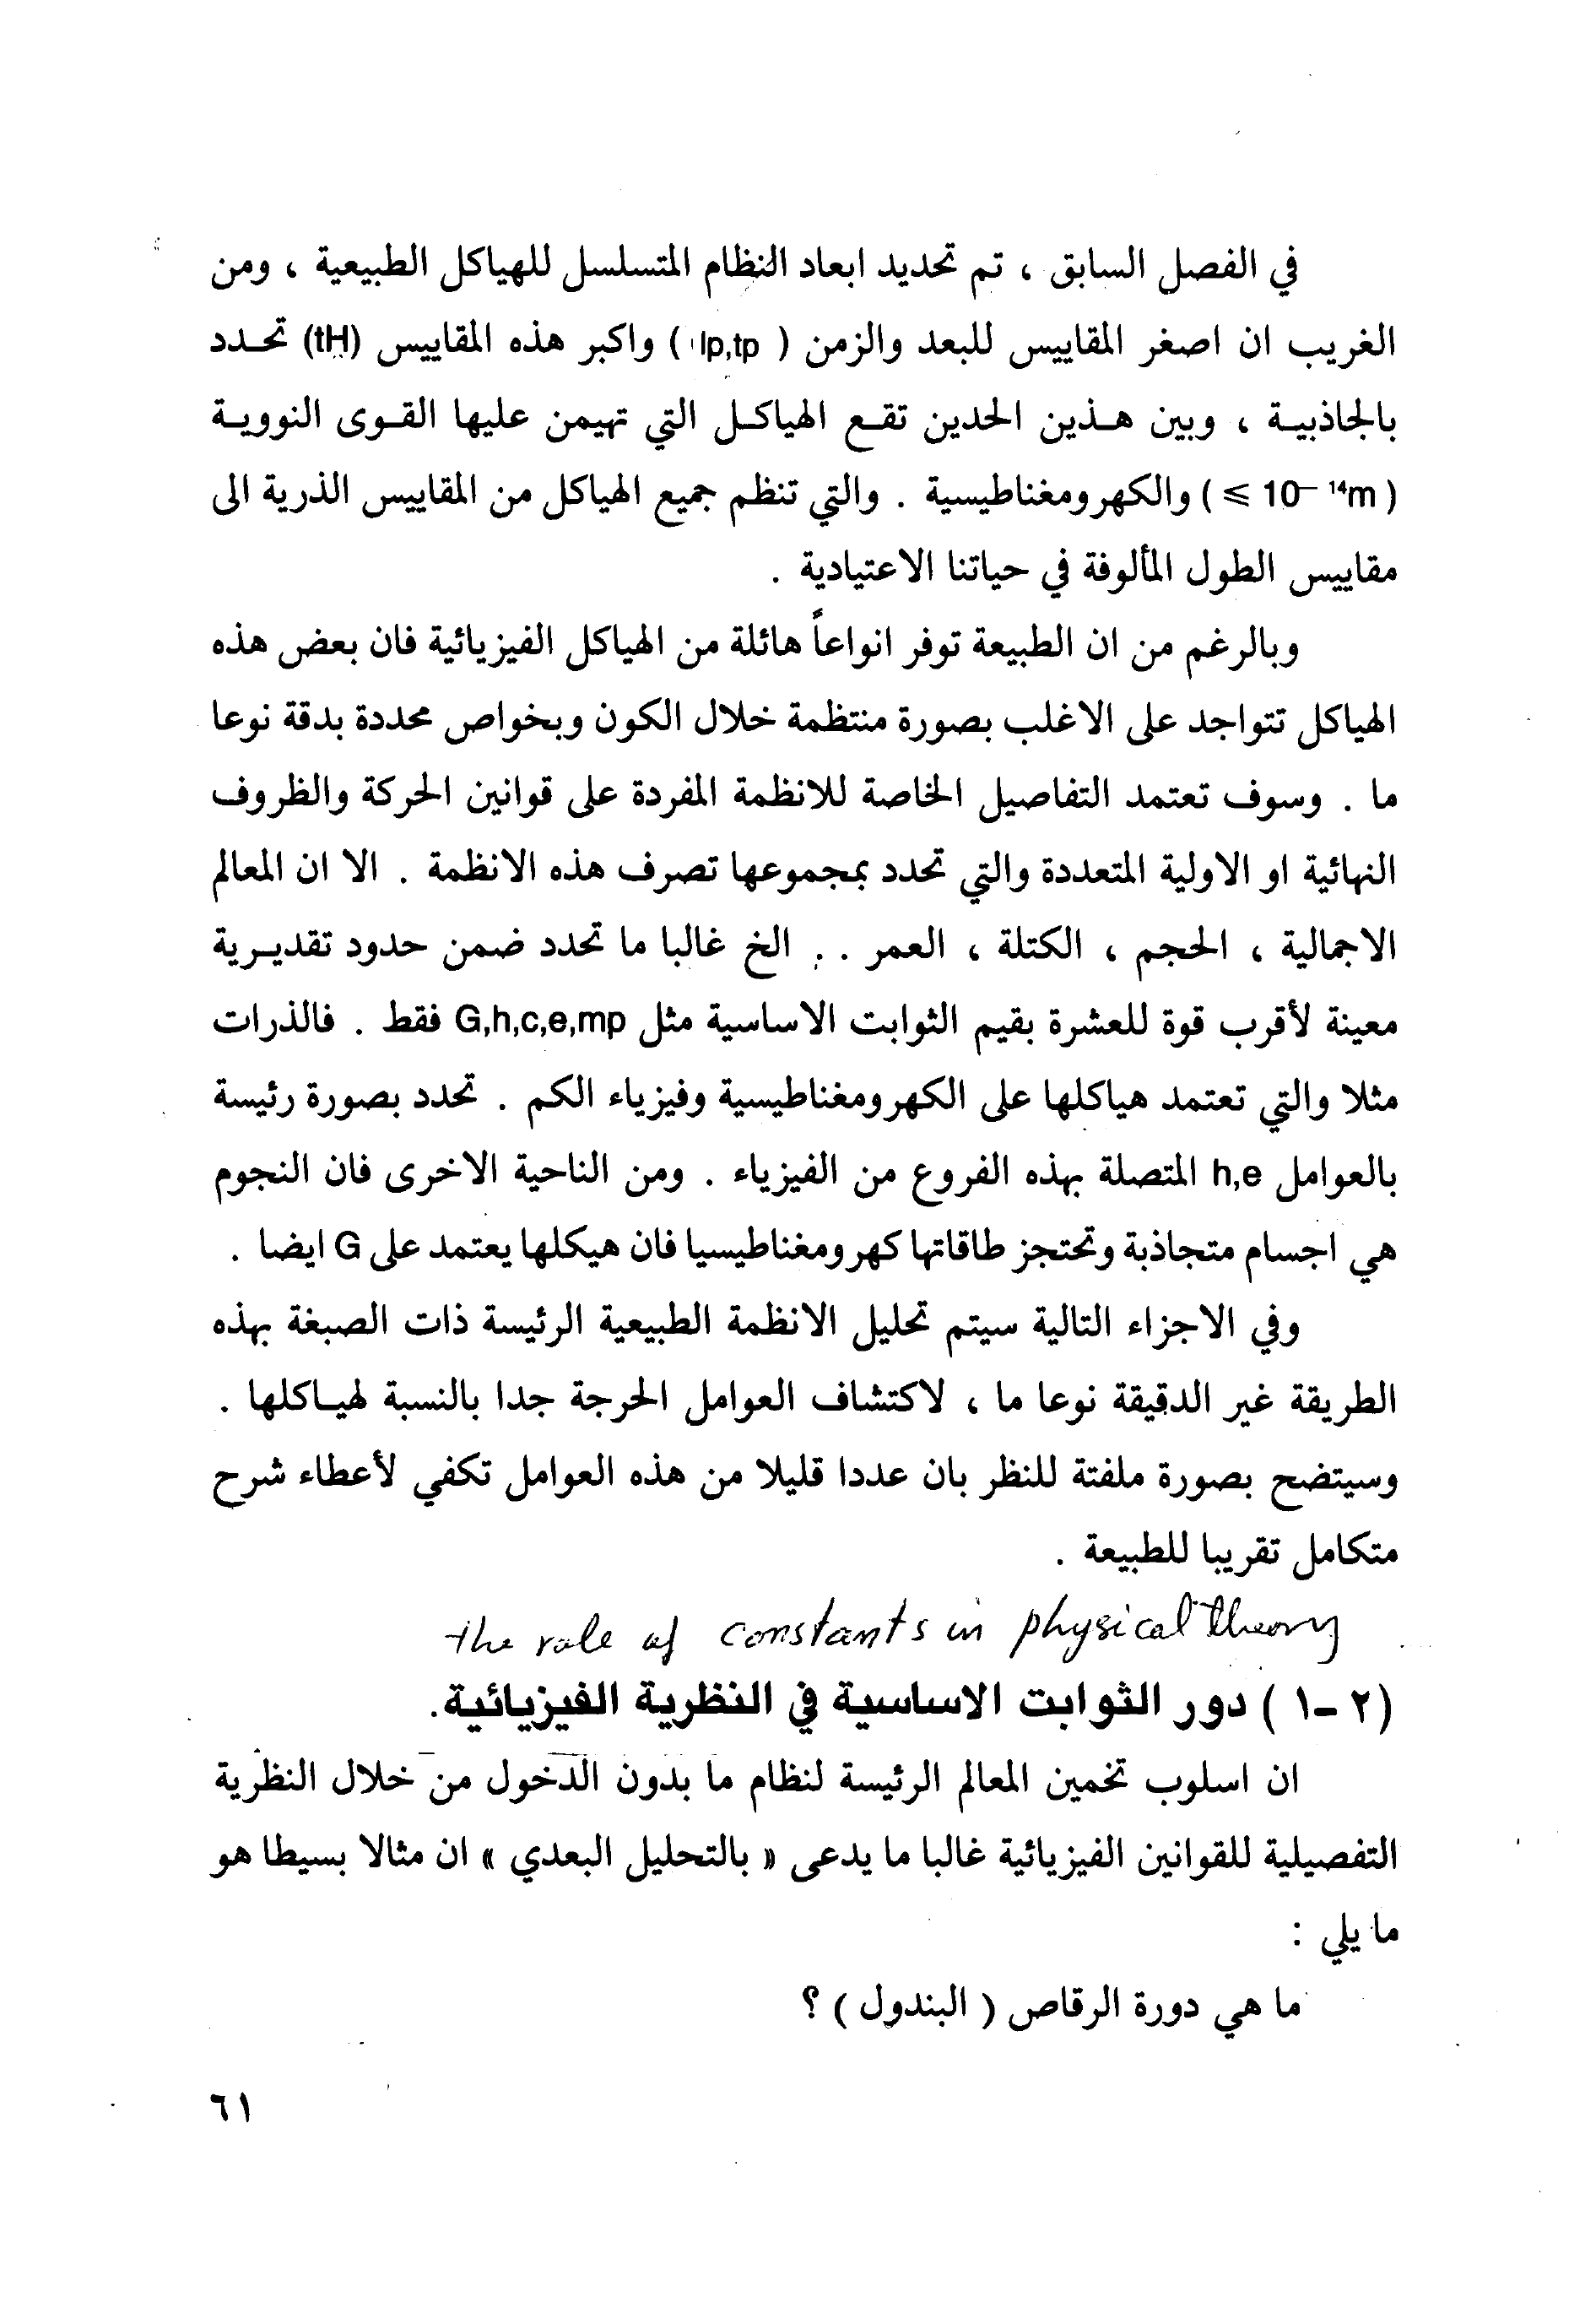 في الفصل السابق ، تم تحديد ابعاد النظام المتسلسل للهياكل الطبيعية ، ومن
الغريب ان اصغر المقاييس للبعد والزمن ( lp,tp ) واكبر هذه المقاييس (tH) تحدد
بالجاذبية ، وبين هذين الحدين تقع الهياكل التي تهيمن عليها القوى النووية
( ⩽ 10⁻ ¹⁴m ) والكهرومغناطيسية . والتي تنظم جميع الهياكل من المقاييس الذرية الى
مقاييس الطول المألوفة في حياتنا الاعتيادية .
وبالرغم من ان الطبيعة توفر انواعاً هائلة من الهياكل الفيزيائية فان بعض هذه
الهياكل تتواجد على الاغلب بصورة منتظمة خلال الكون وبخواص محددة بدقة نوعا
ما . وسوف تعتمد التفاصيل الخاصة للانظمة المفردة على قوانين الحركة والظروف
النهائية او الاولية المتعددة والتي تحدد بمجموعها تصرف هذه الانظمة . الا ان المعالم
الاجمالية ، الحجم ، الكتلة ، العمر . . الخ غالبا ما تحدد ضمن حدود تقديرية
معينة لأقرب قوة للعشرة بقيم الثوابت الاساسية مثل G,h,c,e,mp فقط . فالذرات
مثلا والتي تعتمد هياكلها على الكهرومغناطيسية وفيزياء الكم . تحدد بصورة رئيسة
بالعوامل h,e المتصلة بهذه الفروع من الفيزياء . ومن الناحية الاخرى فان النجوم
هي اجسام متجاذبة وتحتجز طاقاتها كهرومغناطيسيا فان هيكلها يعتمد على G ايضا .
وفي الاجزاء التالية سيتم تحليل الانظمة الطبيعية الرئيسة ذات الصبغة بهذه
الطريقة غير الدقيقة نوعا ما ، لاكتشاف العوامل الحرجة جدا بالنسبة لهياكلها .
وسيتضح بصورة ملفتة للنظر بان عددا قليلا من هذه العوامل تكفي لأعطاء شرح
متكامل تقريبا للطبيعة .
the role of constants in physical theory
(٢ -١ ) دور الثوابت الاساسية في النظرية الفيزيائية.
ان اسلوب تخمين المعالم الرئيسة لنظام ما بدون الدخول من خلال النظرية
التفصيلية للقوانين الفيزيائية غالبا ما يدعى « بالتحليل البعدي » ان مثالا بسيطا هو
ما يلي :
ما هي دورة الرقاص ( البندول ) ؟
٦١